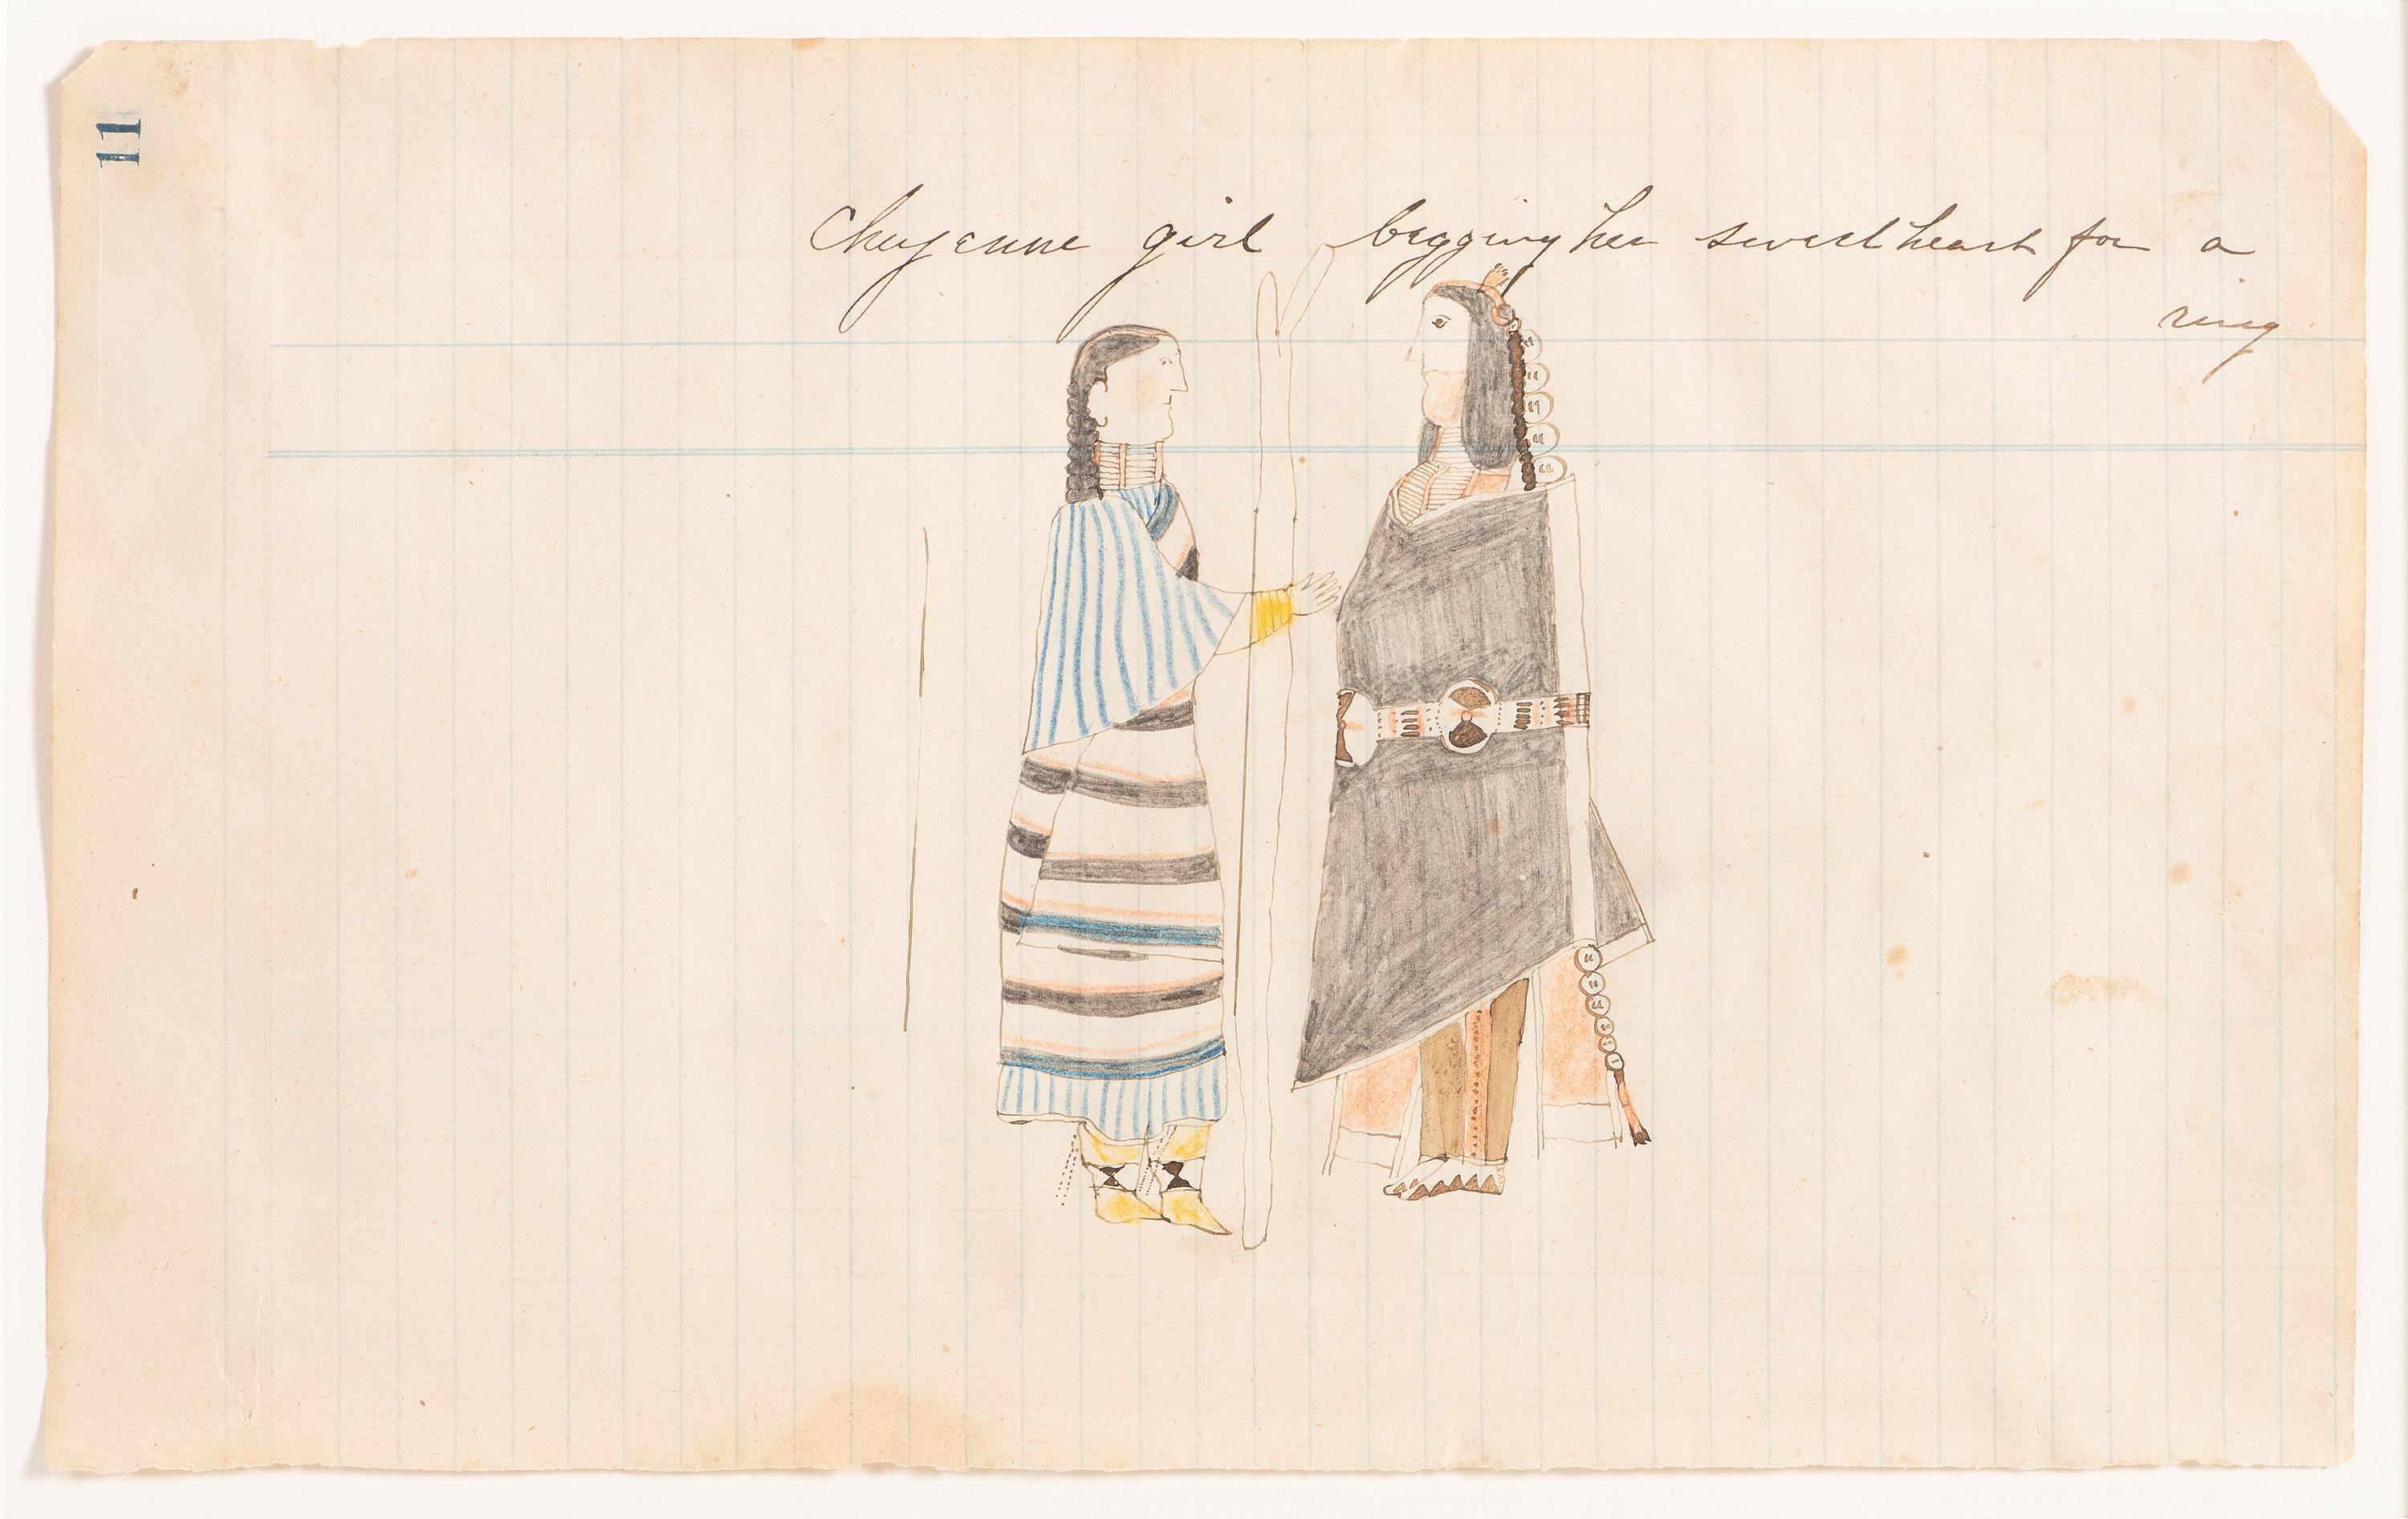 11
Cheyenne girl begging her sweetheart for a
ring